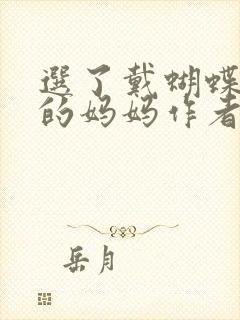 選了戴蝴蝶
的妈妈作者
岳月